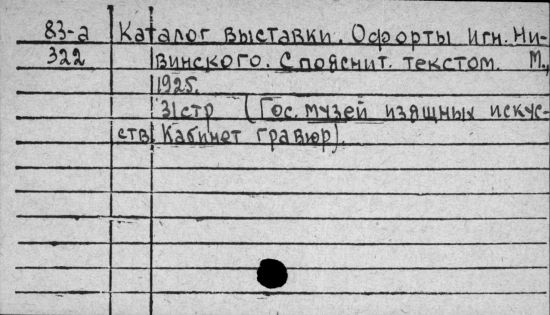 83-а Каталог выставки. Офорты Игн. Ни-
322 винского. С пояснит. текстом. М.,
1925.
31стр (Гос. музей изящных искус-
ств. Кабинет гравюр).